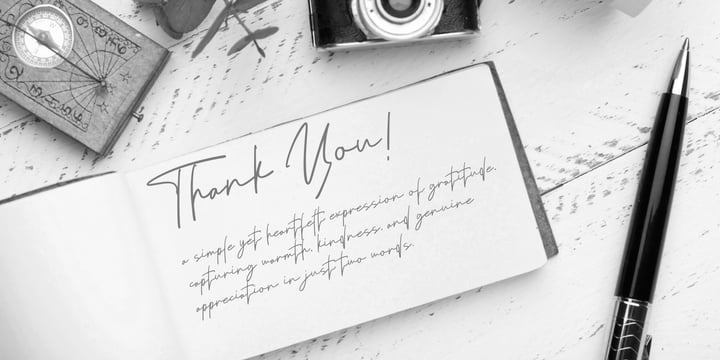 Thank You!
a simple yet heartfelt expression of gratitude,
capturing warmth, kindness, and genuine
appreciation in just two words.